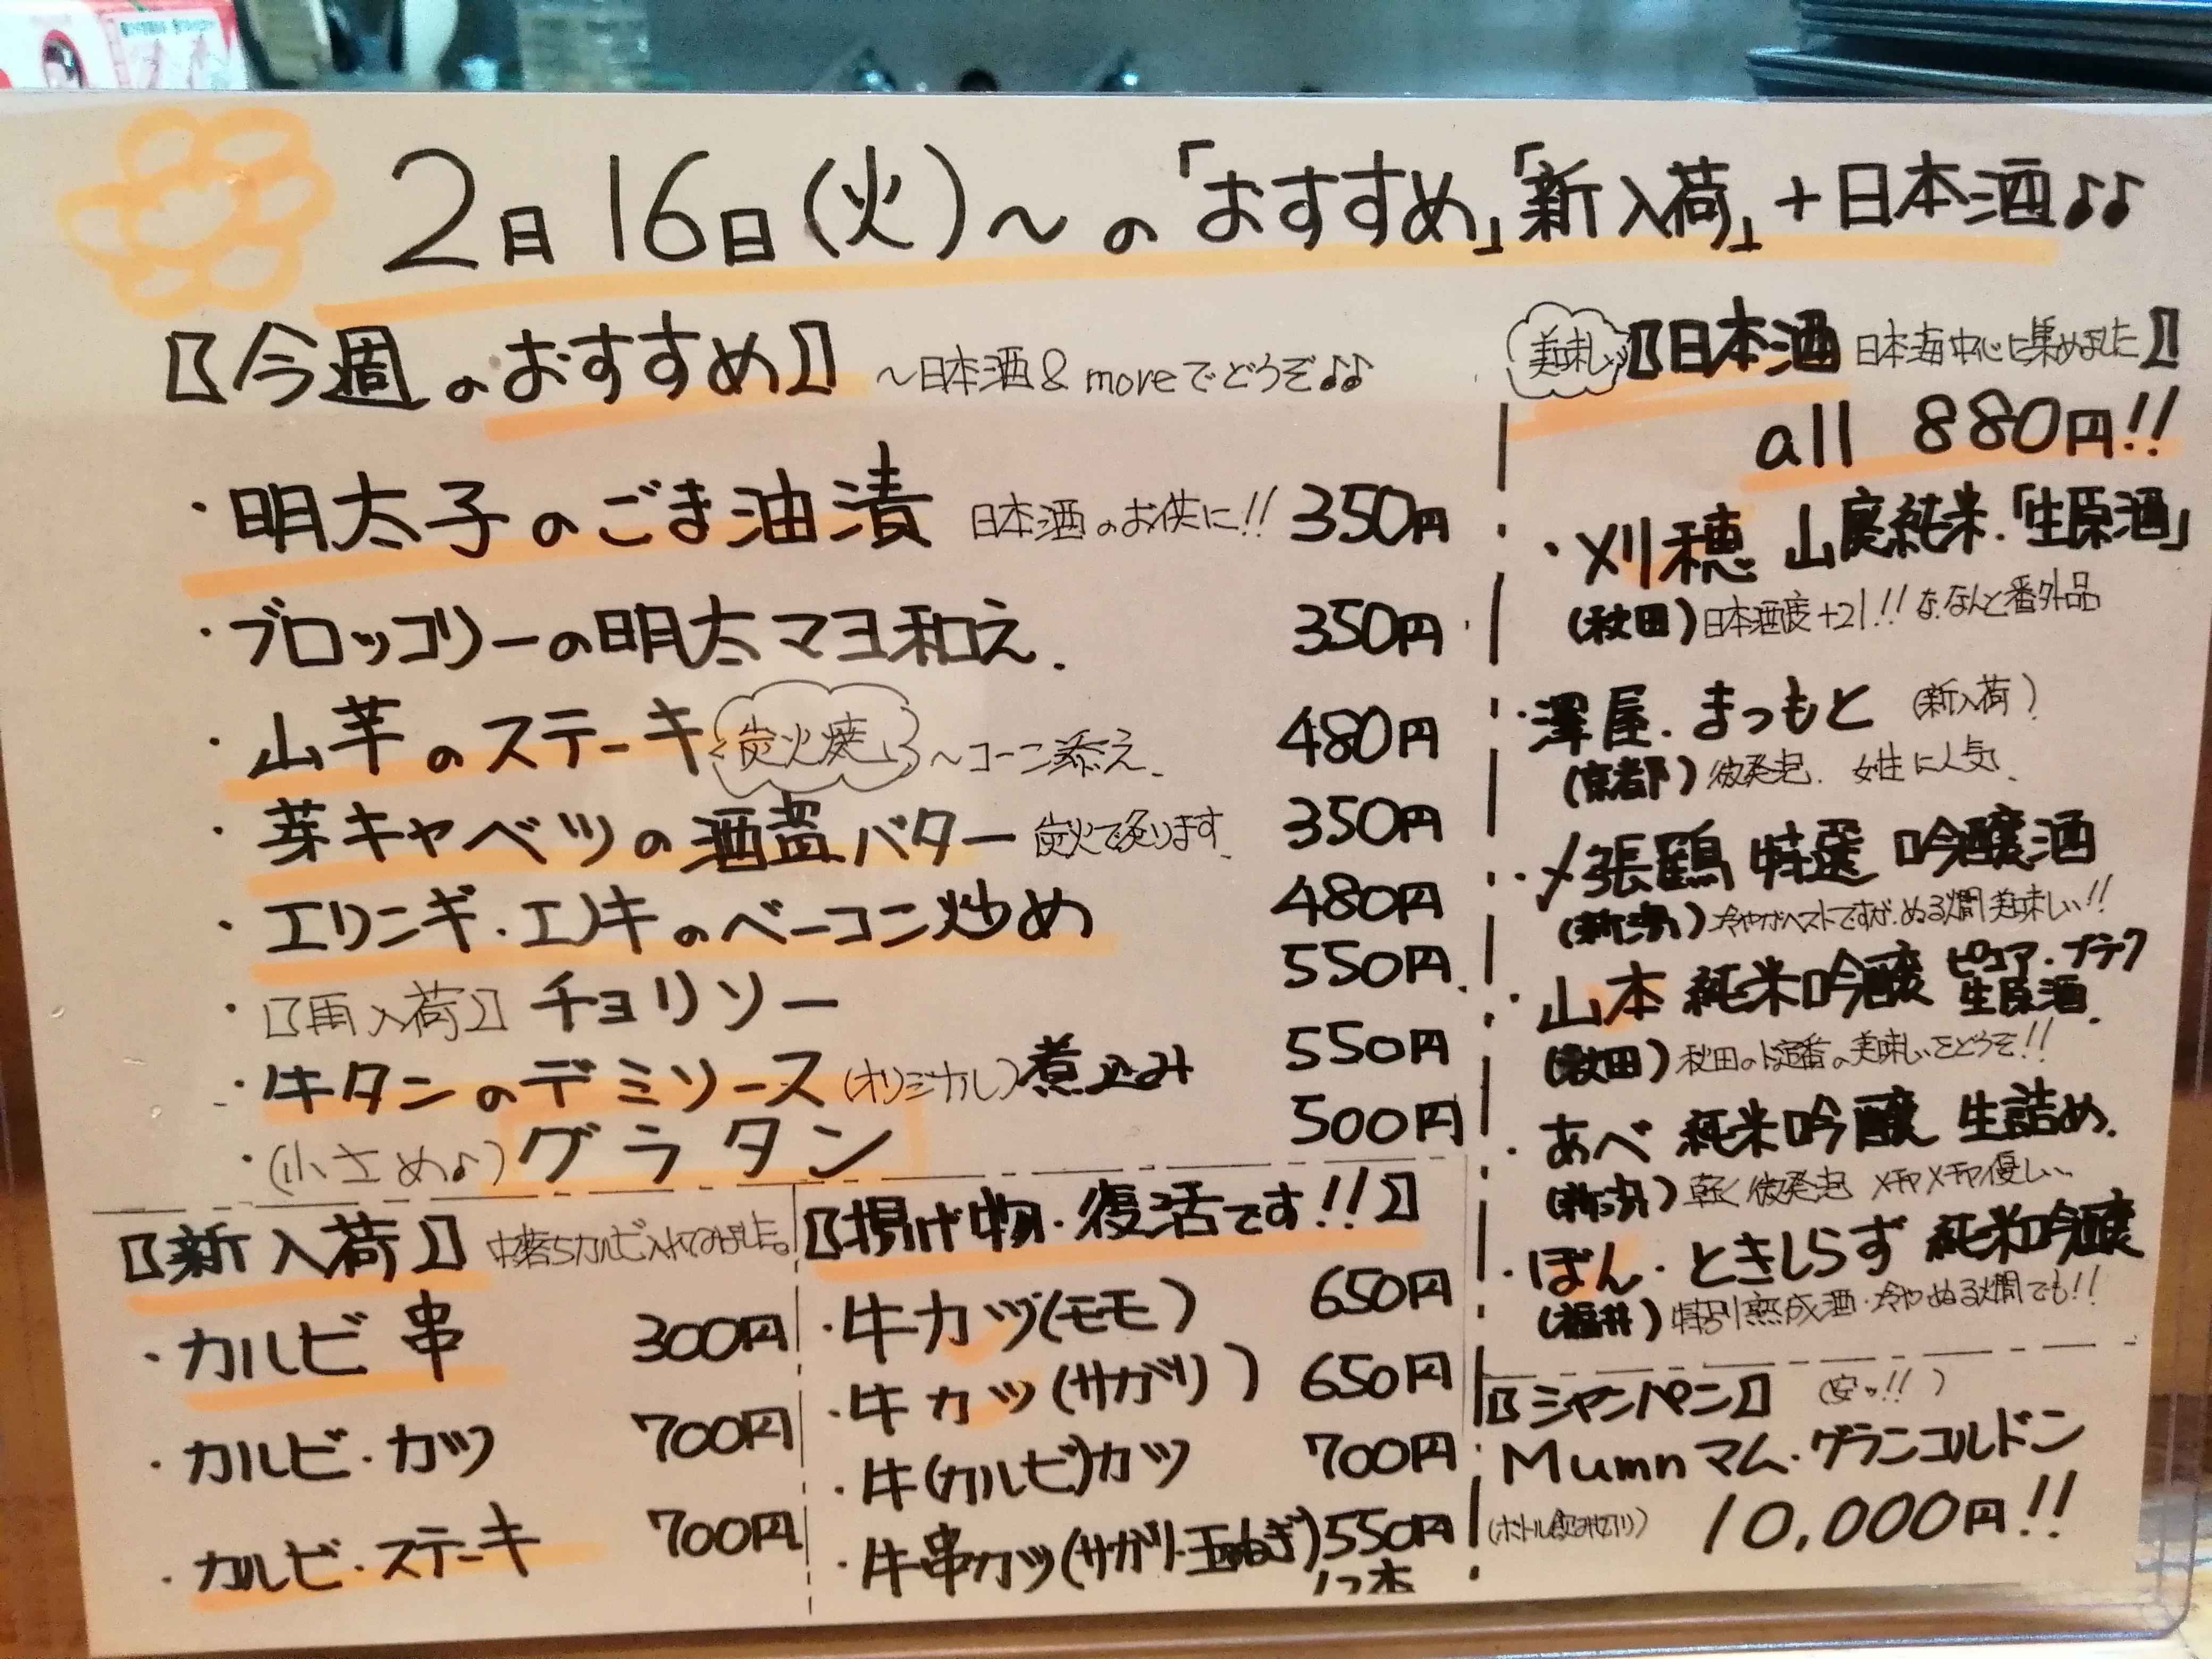 2日16日(火)〜の「おすすめ」「新入荷」+日本酒♪♪
【今週のおすすめ】 〜日本酒&moreでどうぞ♪♪
・明太子のごま油漬 日本酒のお供に!! 350円
・ブロッコリーの明太マヨ和え. 350円
・山芋のステーキ 炭火焼 〜コーン添え. 480円
・芽キャベツの酒盗バター 炭火で炙ります. 350円
・エリンギ・エノキのベーコン炒め 480円
・【再入荷】チョリソー 550円
・牛タンのデミソース(オリジナル)煮込み 550円
・(小さめ♪)グラタン 500円
【新入荷】 カルビ入れてみました。
・カルビ串 300円
・カルビ・カツ 700円
・カルビ・ステーキ 700円
【揚げ物・復活です!!】
・牛カツ(モモ) 650円
・牛カツ(サガリ) 650円
・牛(カルビ)カツ 700円
・牛串カツ(サガリ・玉ねぎ) 550円
美味しい【日本酒 日本海中心に集めました】
all 880円!!
・刈穂 山廃純米.「生原酒」
(秋田)日本酒度+21!! な、なんと番外品
・澤屋.まつもと (新入荷)
(京都)微発泡. 女性に人気.
・〆張鶴 特選 吟醸酒
(新潟)冷やがベストですが、ぬる燗美味しい!!
・山本 純米吟醸 ピュア・ブラック
生原酒.
(秋田)秋田のド定番の美味しいをどうぞ!!
・あべ 純米吟醸 生詰め.
(新潟)軽く微発泡 メチャメチャ優しい.
・ぼん・ときしらず 純米吟醸
(福井)特別熟成酒・冷やぬる燗でも!!
【シャンパン】 (安ッ!!)
Mumnマム・グランコルドン
(ボトル飲み切り) 10,000円!!